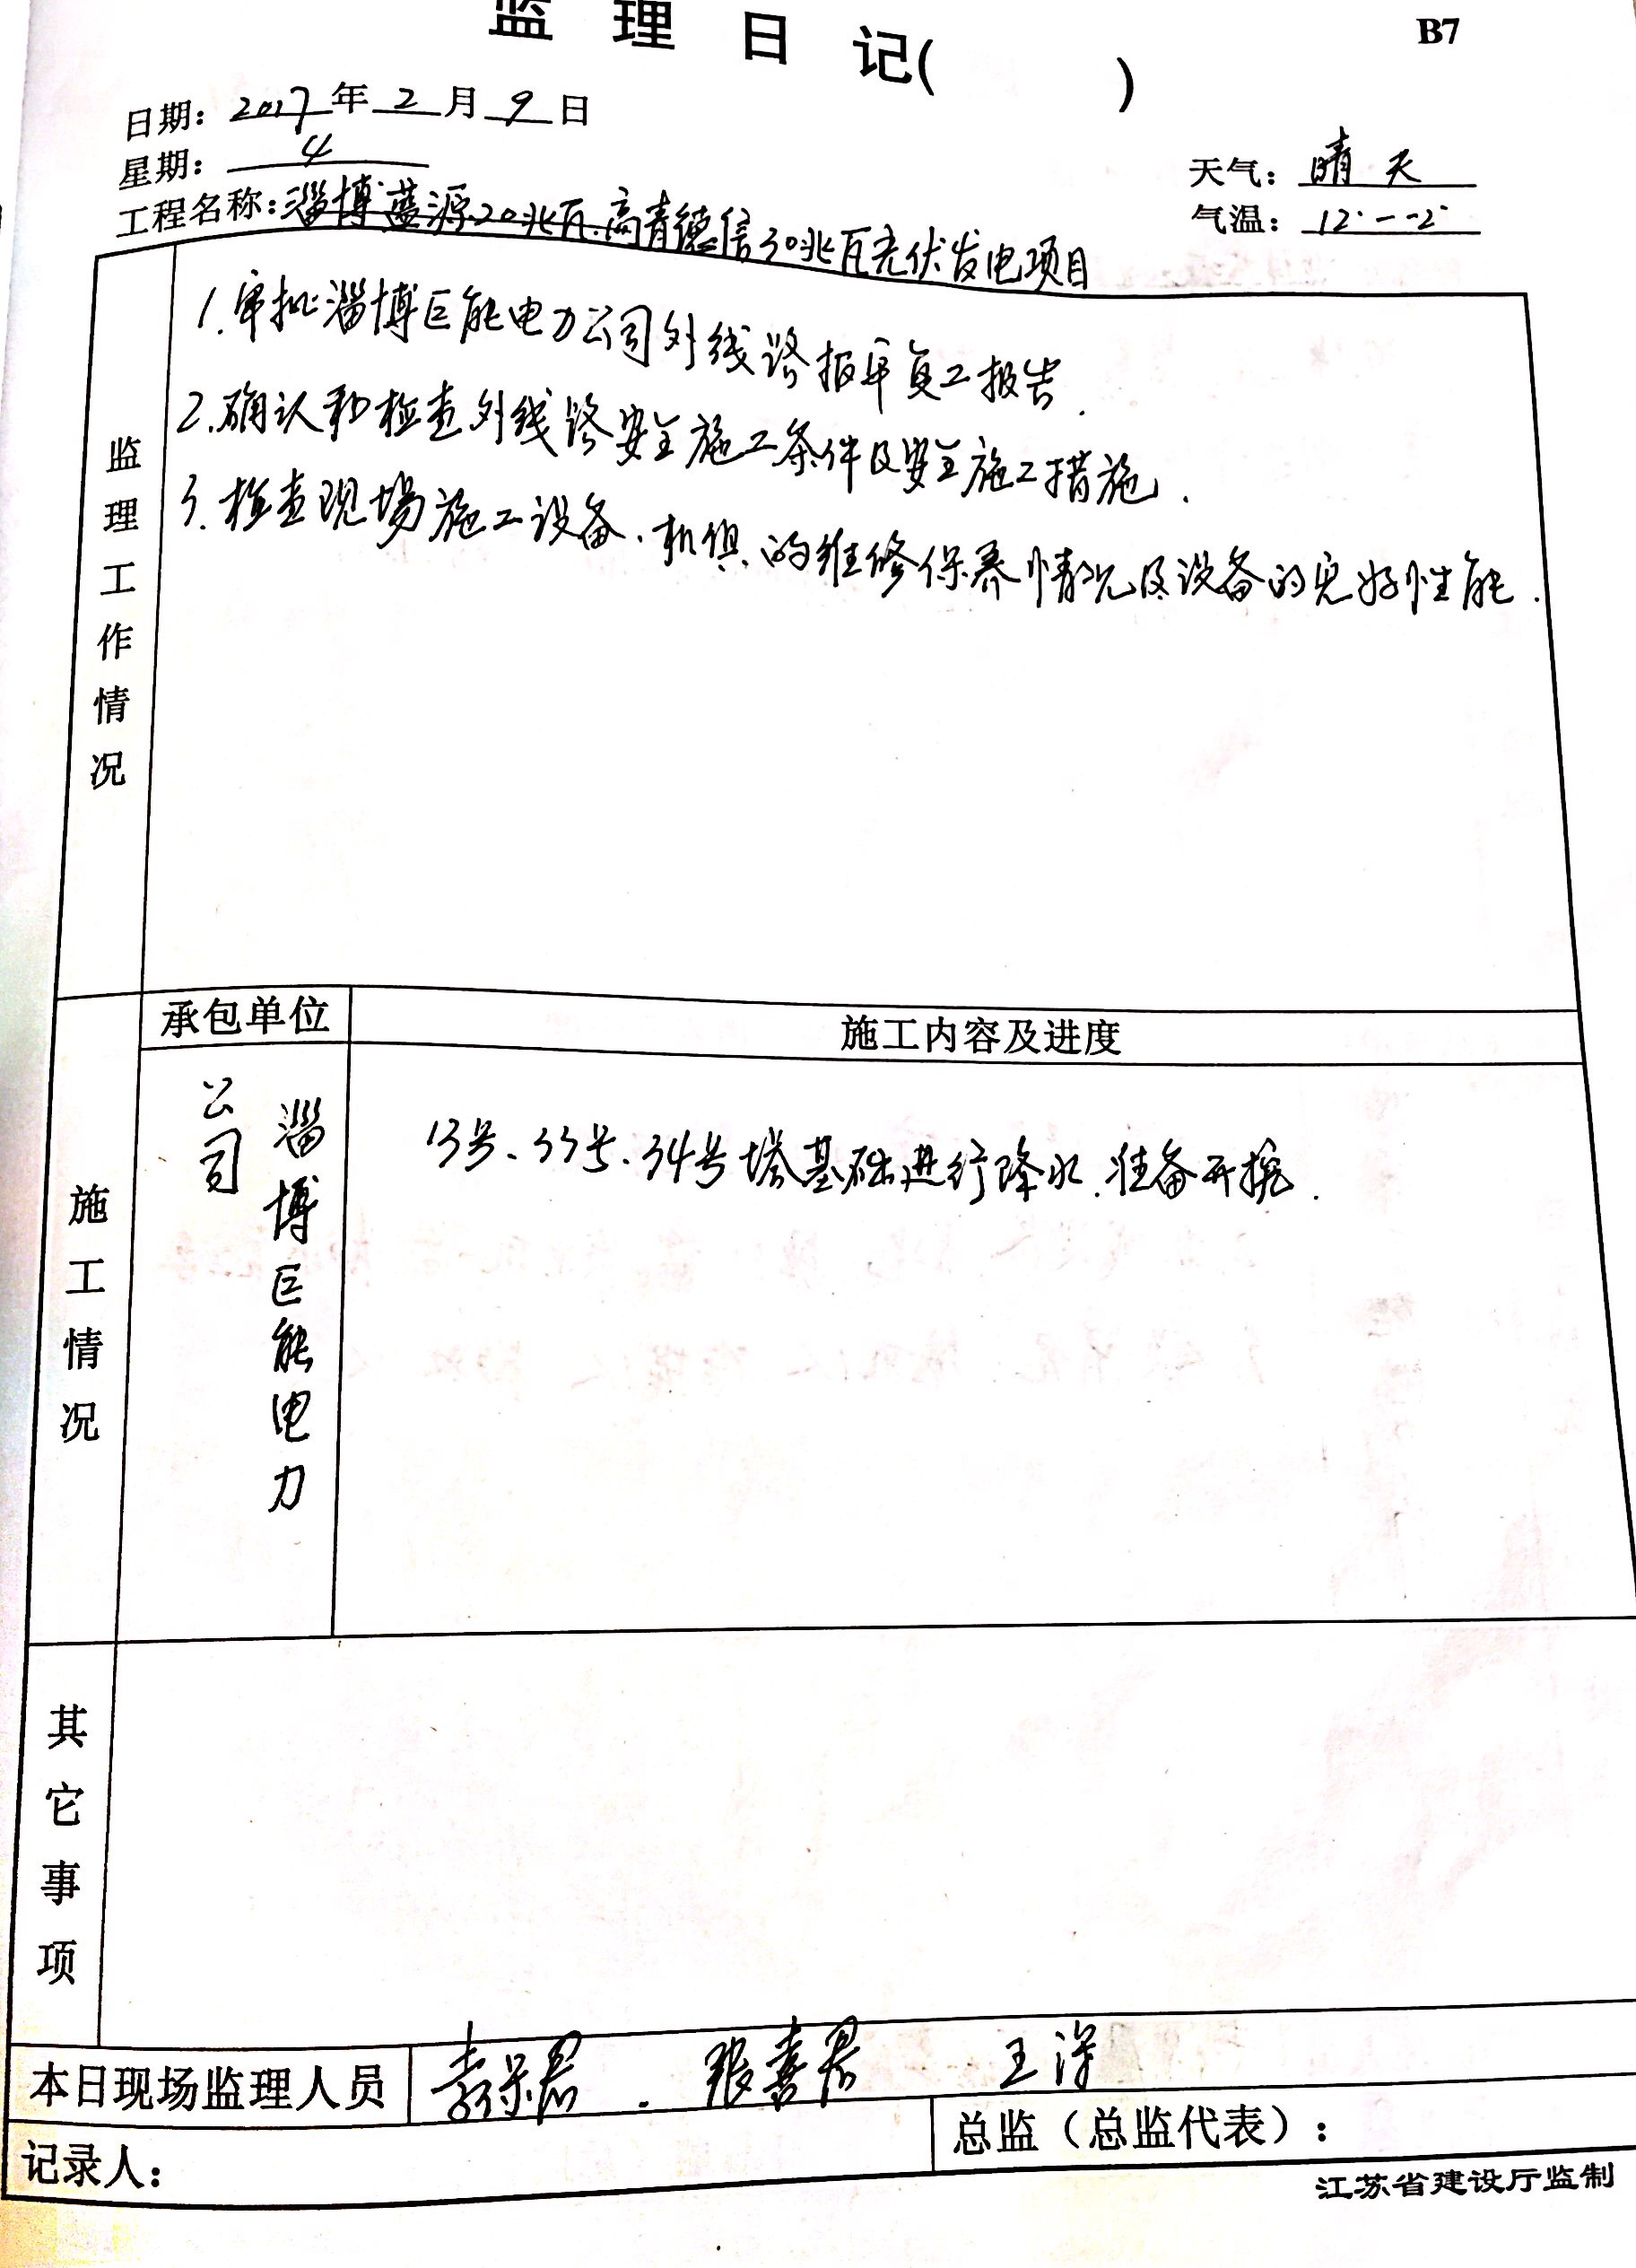 监 理 日 记( )
B7
日期：2017年2月9日
星期：4
天气：晴天
工程名称：淄博蓝源20兆瓦.高青德信30兆瓦光伏发电项目
气温：12°--2°
监理工作情况
1.审批淄博巨能电力公司外线路报审复工报告.
2.确认和检查外线路安全施工条件及安全施工措施.
3.检查现场施工设备、机俱的维修保养情况及设备的完好性能.
承包单位
施工内容及进度
施工情况
淄博巨能电力
公司
13号、33号、34号塔基础进行降水.准备开挖.
其它事项
本日现场监理人员
张喜君 王
记录人：
总监（总监代表）：
江苏省建设厅监制